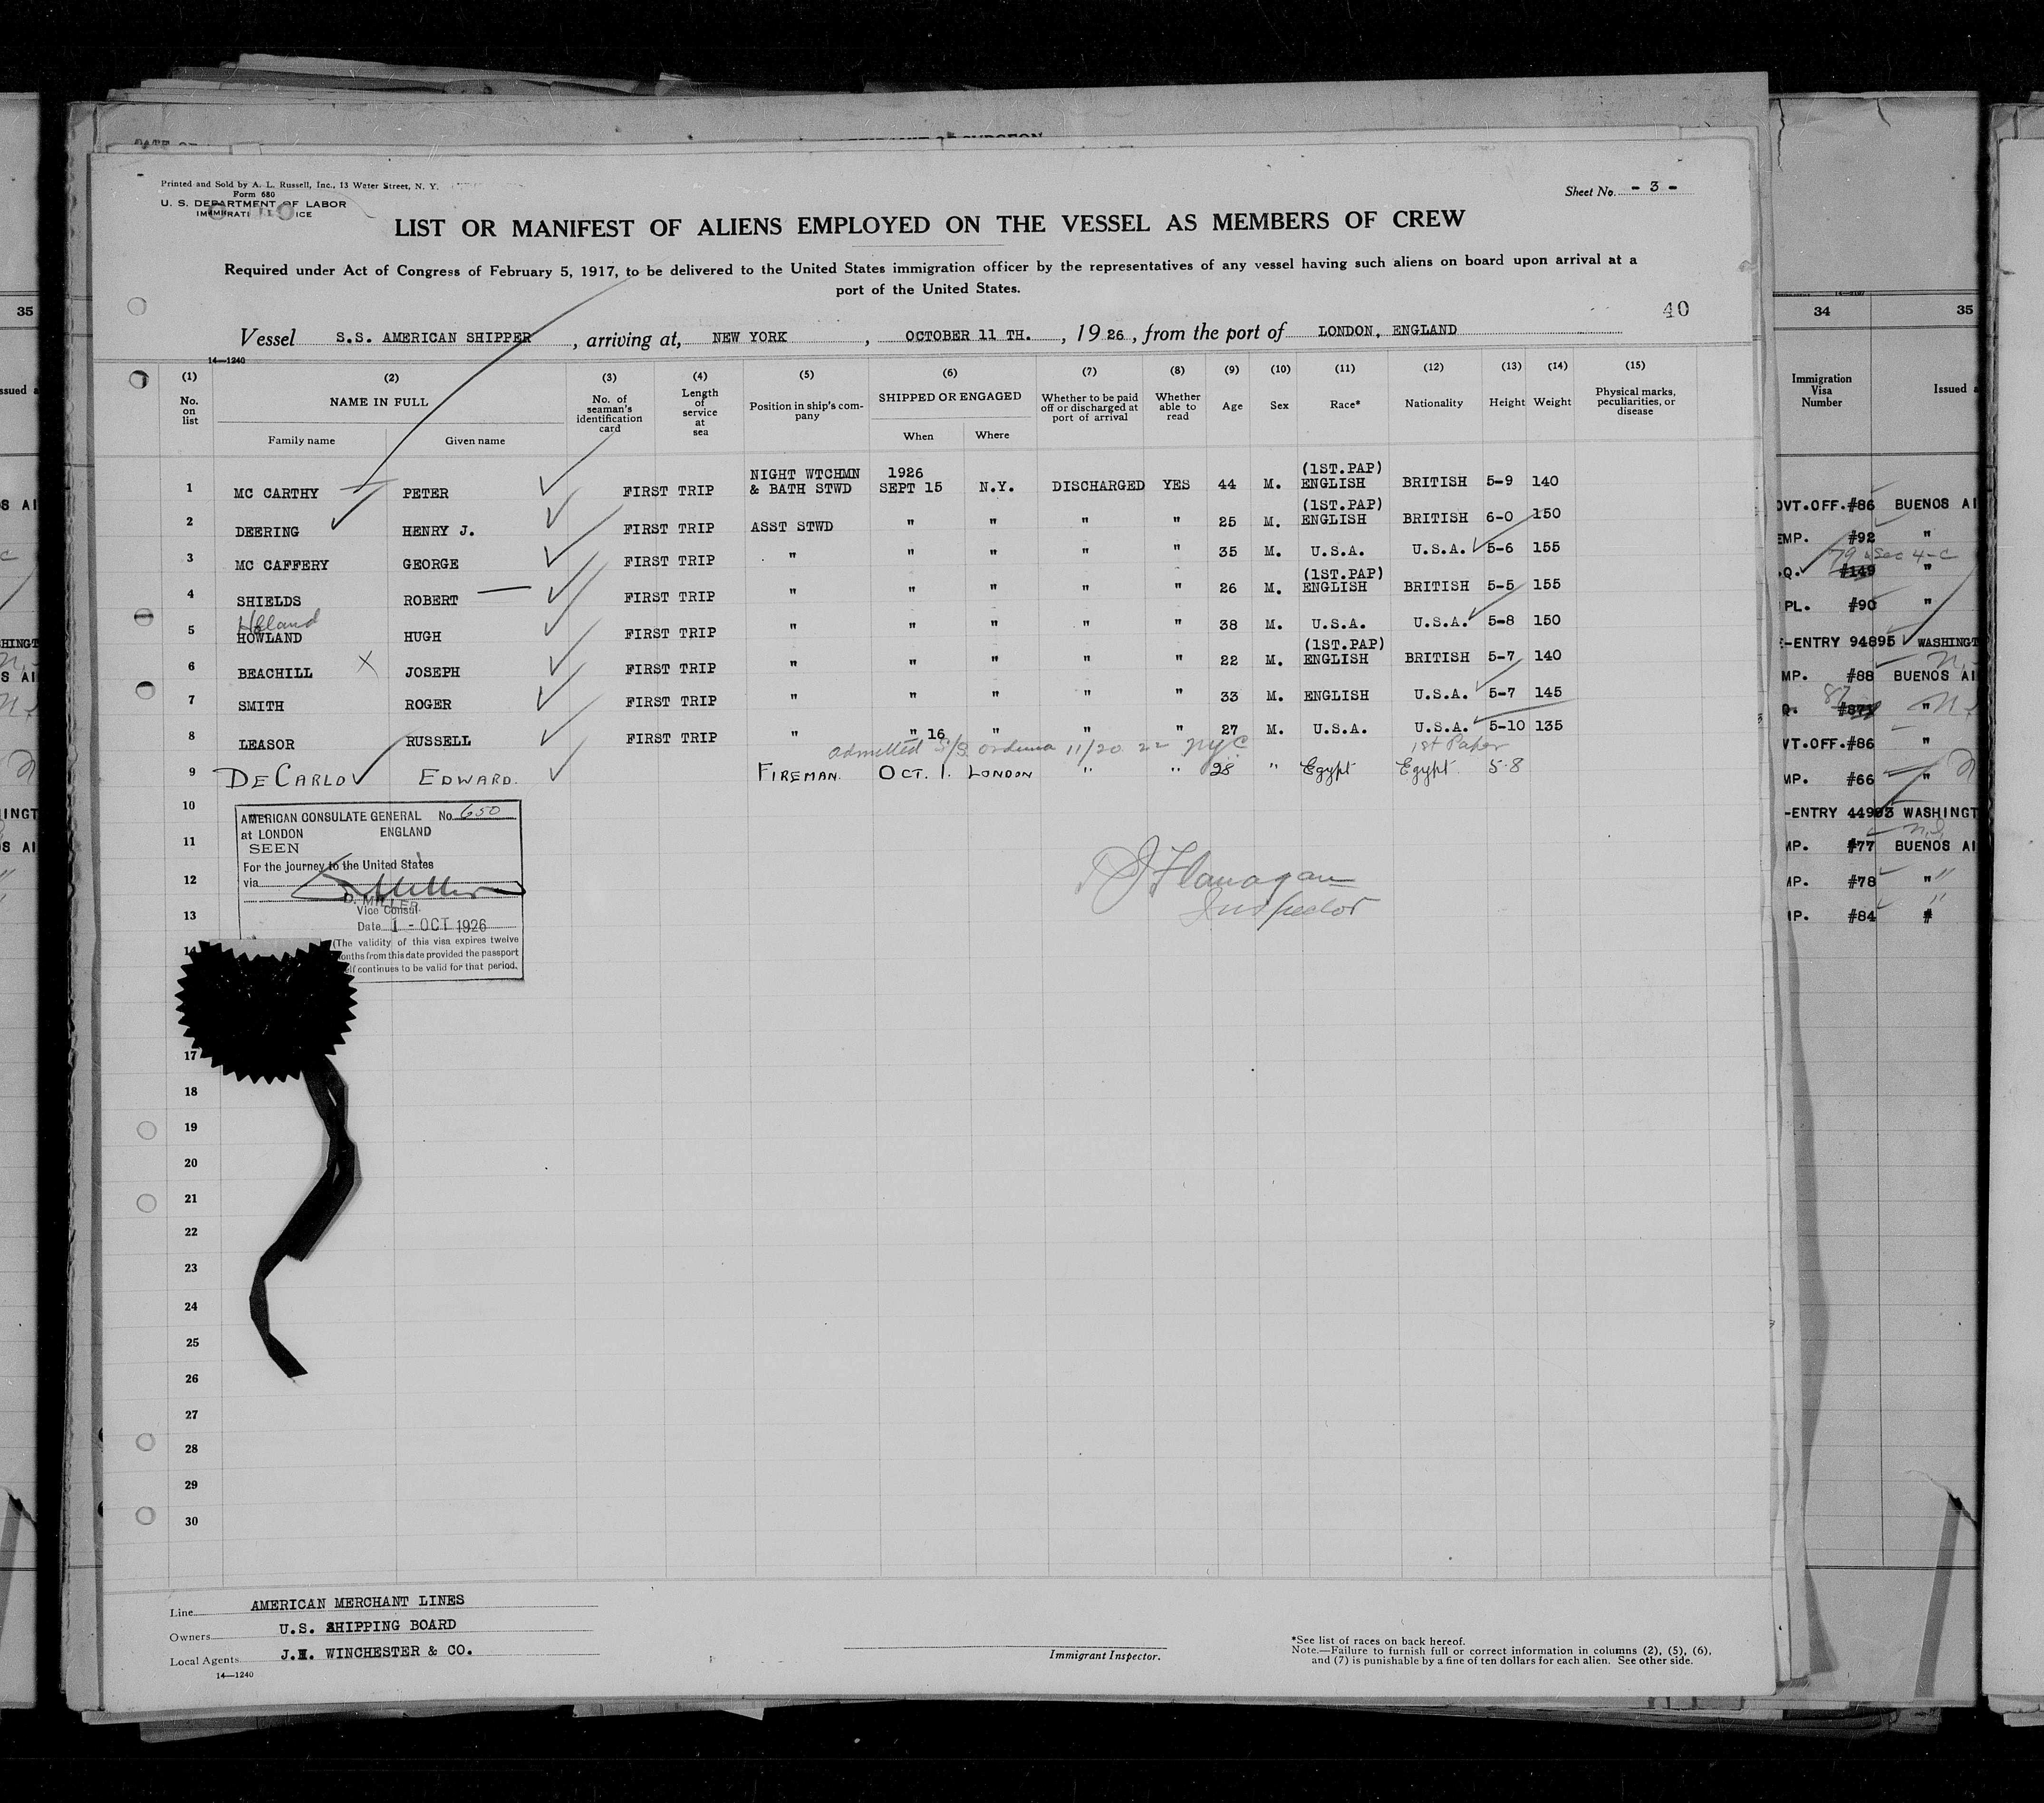 Printed and Sold by A. L. Russell, Inc., 13 Water Street, N. Y.
Form 680
U. S. DEPARTMENT OF LABOR
Sheet No. - 3 -
LIST OR MANIFEST OF ALIENS EMPLOYED ON THE VESSEL AS MEMBERS OF CREW
Required under Act of Congress of February 5, 1917, to be delivered to the United States immigration officer by the representatives of any vessel having such aliens on board upon arrival at a
port of the United States.
40
Vessel S.S. AMERICAN SHIPPER, arriving at, NEW YORK, OCTOBER 11 TH., 19 26, from the port of LONDON, ENGLAND
14—1240
(1) (2) (3) (4) (5) (6) (7) (8) (9) (10) (11) (12) (13) (14) (15)
No. on list
NAME IN FULL
Family name Given name
No. of seaman's identification card
Length of service at sea
Position in ship's company
SHIPPED OR ENGAGED
When Where
Whether to be paid off or discharged at port of arrival
Whether able to read
Age Sex Race* Nationality Height Weight
Physical marks, peculiarities, or disease
1 MC CARTHY PETER FIRST TRIP NIGHT WTCHMN & BATH STWD 1926 SEPT 15 N.Y. DISCHARGED YES 44 M. (1ST.PAP) ENGLISH BRITISH 5-9 140
2 DEERING HENRY J. FIRST TRIP ASST STWD " " " " 25 M. (1ST.PAP) ENGLISH BRITISH 6-0 150
3 MC CAFFERY GEORGE FIRST TRIP " " " " " 35 M. U.S.A. U.S.A. 5-6 155
4 SHIELDS ROBERT FIRST TRIP " " " " " 26 M. (1ST.PAP) ENGLISH BRITISH 5-5 155
5 HOWLAND HUGH FIRST TRIP " " " " " 38 M. U.S.A. U.S.A. 5-8 150
6 BEACHILL X JOSEPH FIRST TRIP " " " " " 22 M. (1ST.PAP) ENGLISH BRITISH 5-7 140
7 SMITH ROGER FIRST TRIP " " " " " 33 M. ENGLISH U.S.A. 5-7 145
8 LEASOR RUSSELL FIRST TRIP " " 16 " " " 27 M. U.S.A. U.S.A. 5-10 135
admitted S/S Orduna 11/20 22 NYC 1st Paper
9 DE CARLO EDWARD. FIREMAN. OCT. 1. LONDON " " 28 " Egypt Egypt. 5-8
10
11
12
13
14
17
18
19
20
21
22
23
24
25
26
27
28
29
30
AMERICAN CONSULATE GENERAL No. 650
at LONDON ENGLAND
SEEN
For the journey to the United States
via
D. Miller
D. MILLER
Vice Consul
Date 1 - OCT 1926
(The validity of this visa expires twelve
months from this date provided the passport
itself continues to be valid for that period.
Flanagan
Inspector
Line AMERICAN MERCHANT LINES
Owners U.S. SHIPPING BOARD
Local Agents J.H. WINCHESTER & CO.
14—1240
Immigrant Inspector.
*See list of races on back hereof.
Note.—Failure to furnish full or correct information in columns (2), (5), (6),
and (7) is punishable by a fine of ten dollars for each alien. See other side.
34 35
Immigration Visa Number
#86 BUENOS AI
#92 "
79 Sec 4-C
#149 "
#90 "
-ENTRY 94895 WASHINGT
#88 BUENOS AI
"
#86 "
#66 "
-ENTRY 44903 WASHINGT
#77 BUENOS AI
#78 "
#84 #
35